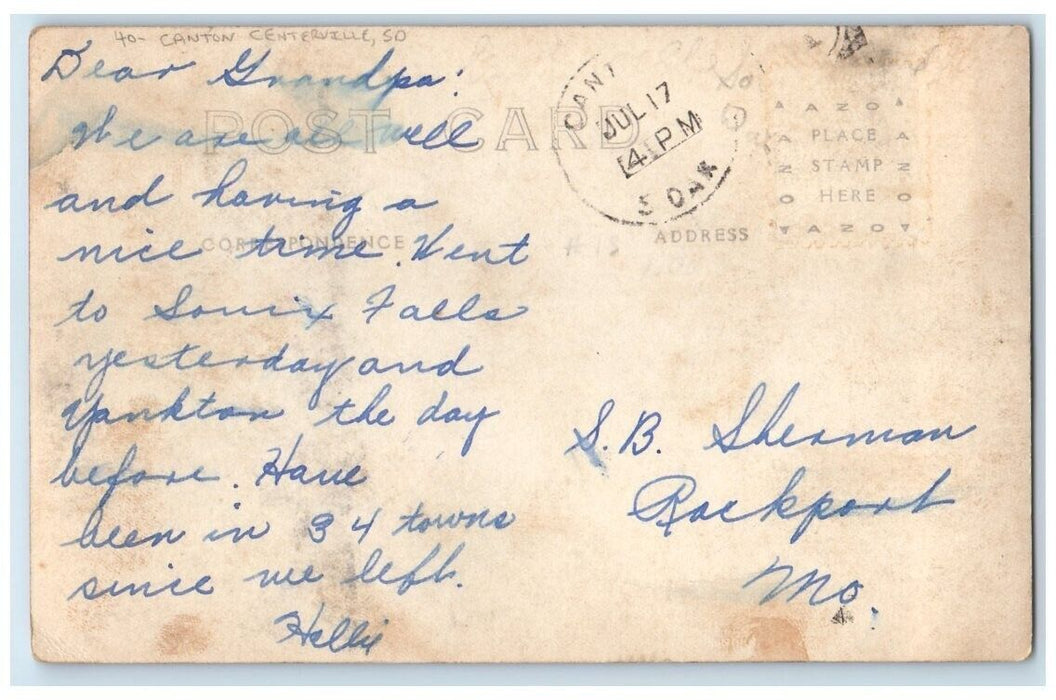 40- CANTON CENTERVILLE, SD
Dear Grandpa:
We are all well
and having a
nice time. Went
to Souix Falls
yesterday and
Yankton the day
before. Have
been in 34 towns
since we left.
Hallie
POST CARD
CORRESPONDENCE
ADDRESS
CANT
JUL 17
4 PM
S DAK
AZO
PLACE
STAMP
HERE
AZO
S. B. Sherman
Rockport
Mo.